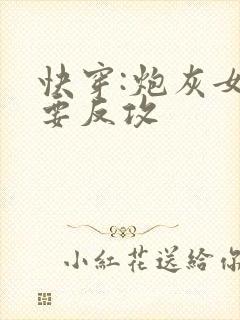 快穿:炮灰女
要反攻
小紅花送給你